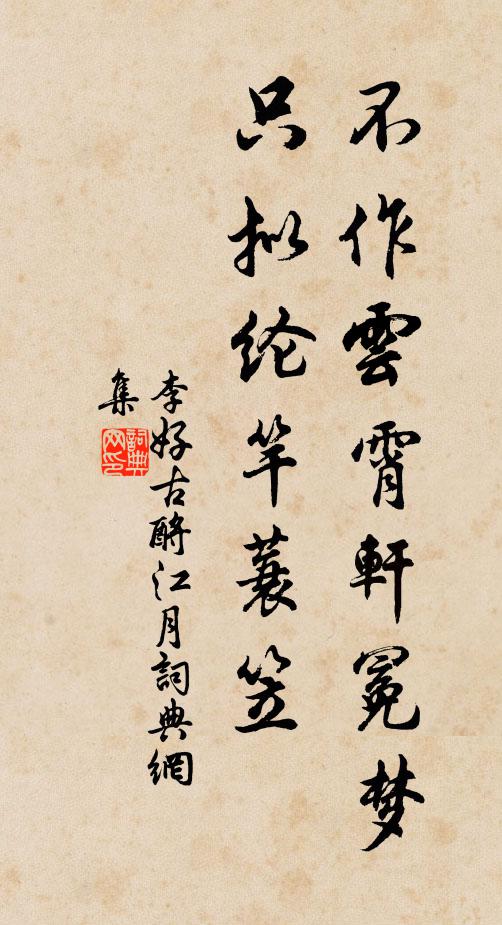 不作雲霄軒冕梦
只拟纶竿蓑笠
李好古酹江月詞典網
集
詞典
网印